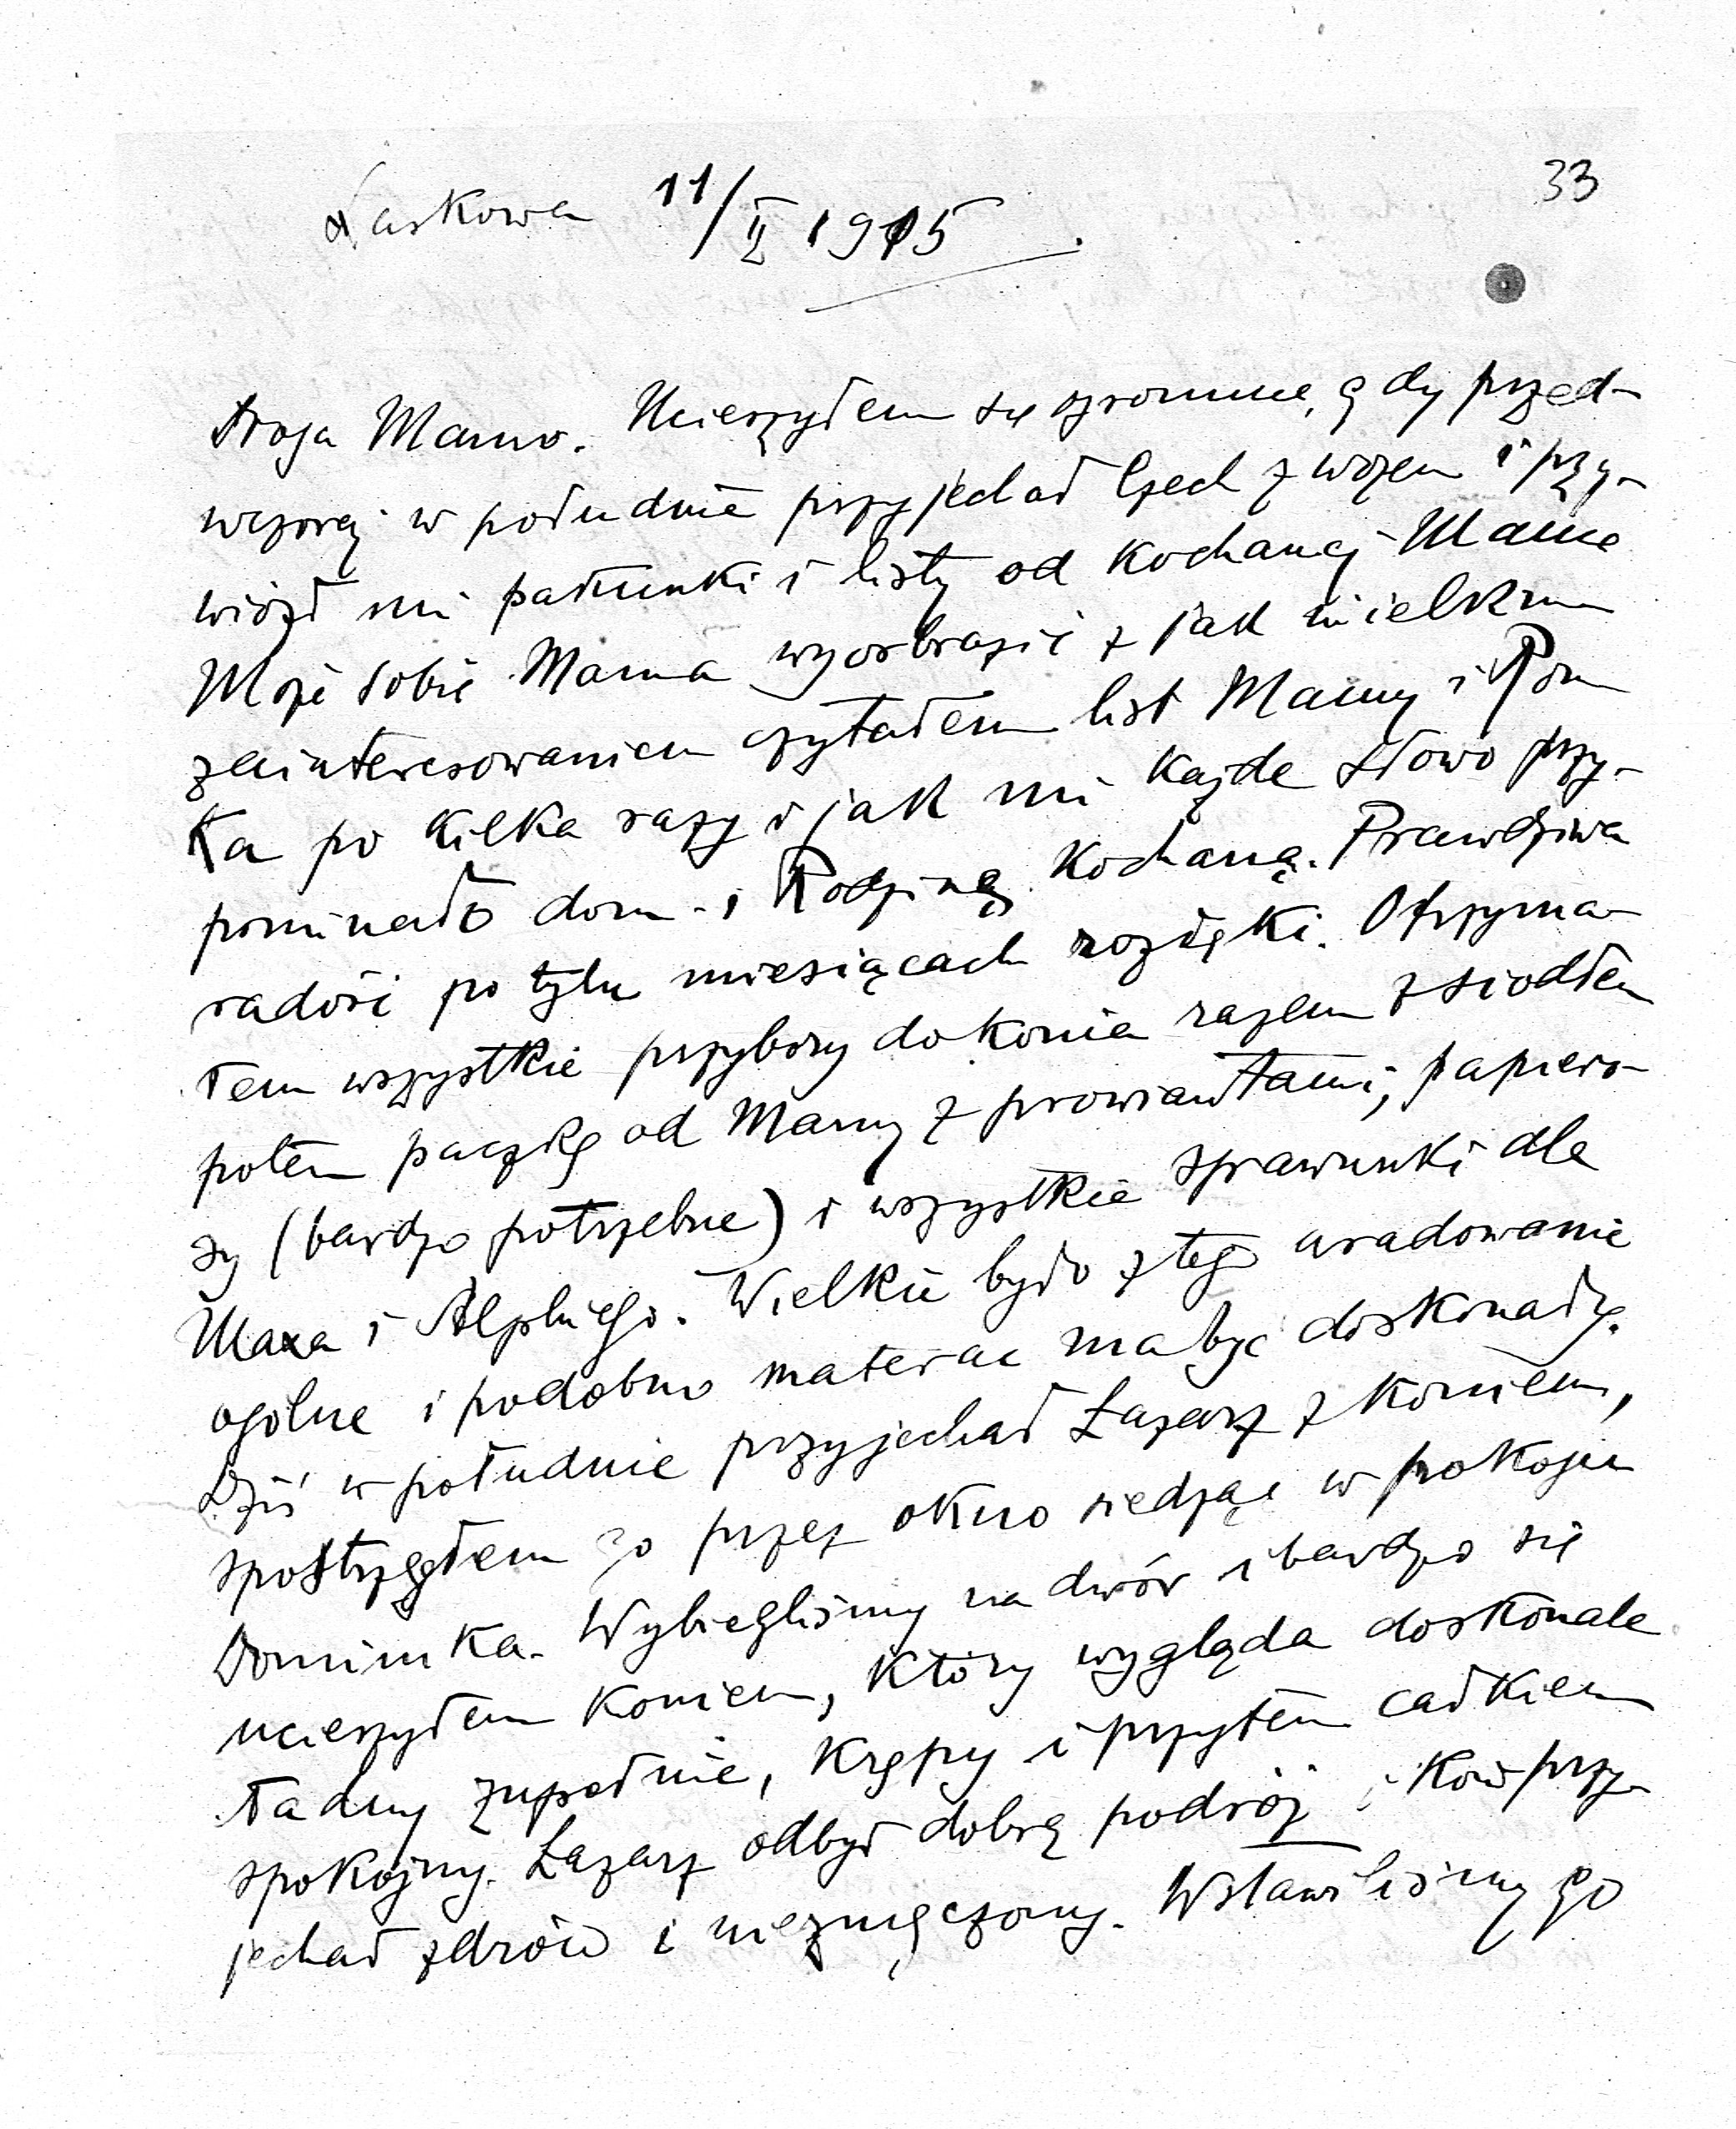 33
Laskowa 11/II 1915.
Droga Mamo. Ucieszyłem się ogromnie, gdy przed-
wczoraj w południe przyjechał Czech z wozem i przy-
wiózł mi pakunki i listy od kochanej Mamy
Może sobie Mama wyobrazić z jak wielkim
zainteresowaniem czytałem list Mamy i Rom
ka po kilka razy i jak mi każde słowo przy-
pominało dom i Rodzinę kochaną. Prawdziwa
radość po tylu miesiącach rozłąki. Otrzyma-
łem wszystkie przybory do konia razem z siodłem
potem paczkę od Mamy z prowiantami, papiero-
sy (bardzo potrzebne) i wszystkie sprawunki dla
Maxa i Wielkie było z tego uradowanie
ogólne i podobno materac ma być doskonały.
Dziś w południe przyjechał Łazarz z koniem,
spostrzegłem go przez okno siedząc w pokoju
Dominika. Wybiegliśmy na dwór i bardzo się
ucieszyłem koniem, który wygląda doskonale
ładny zupełnie, krępy i przytem całkiem
spokojny. Łazarz odbył dobrą podróż i koń przy-
jechał zdrów i niezmęczony. Wstawiliśmy go